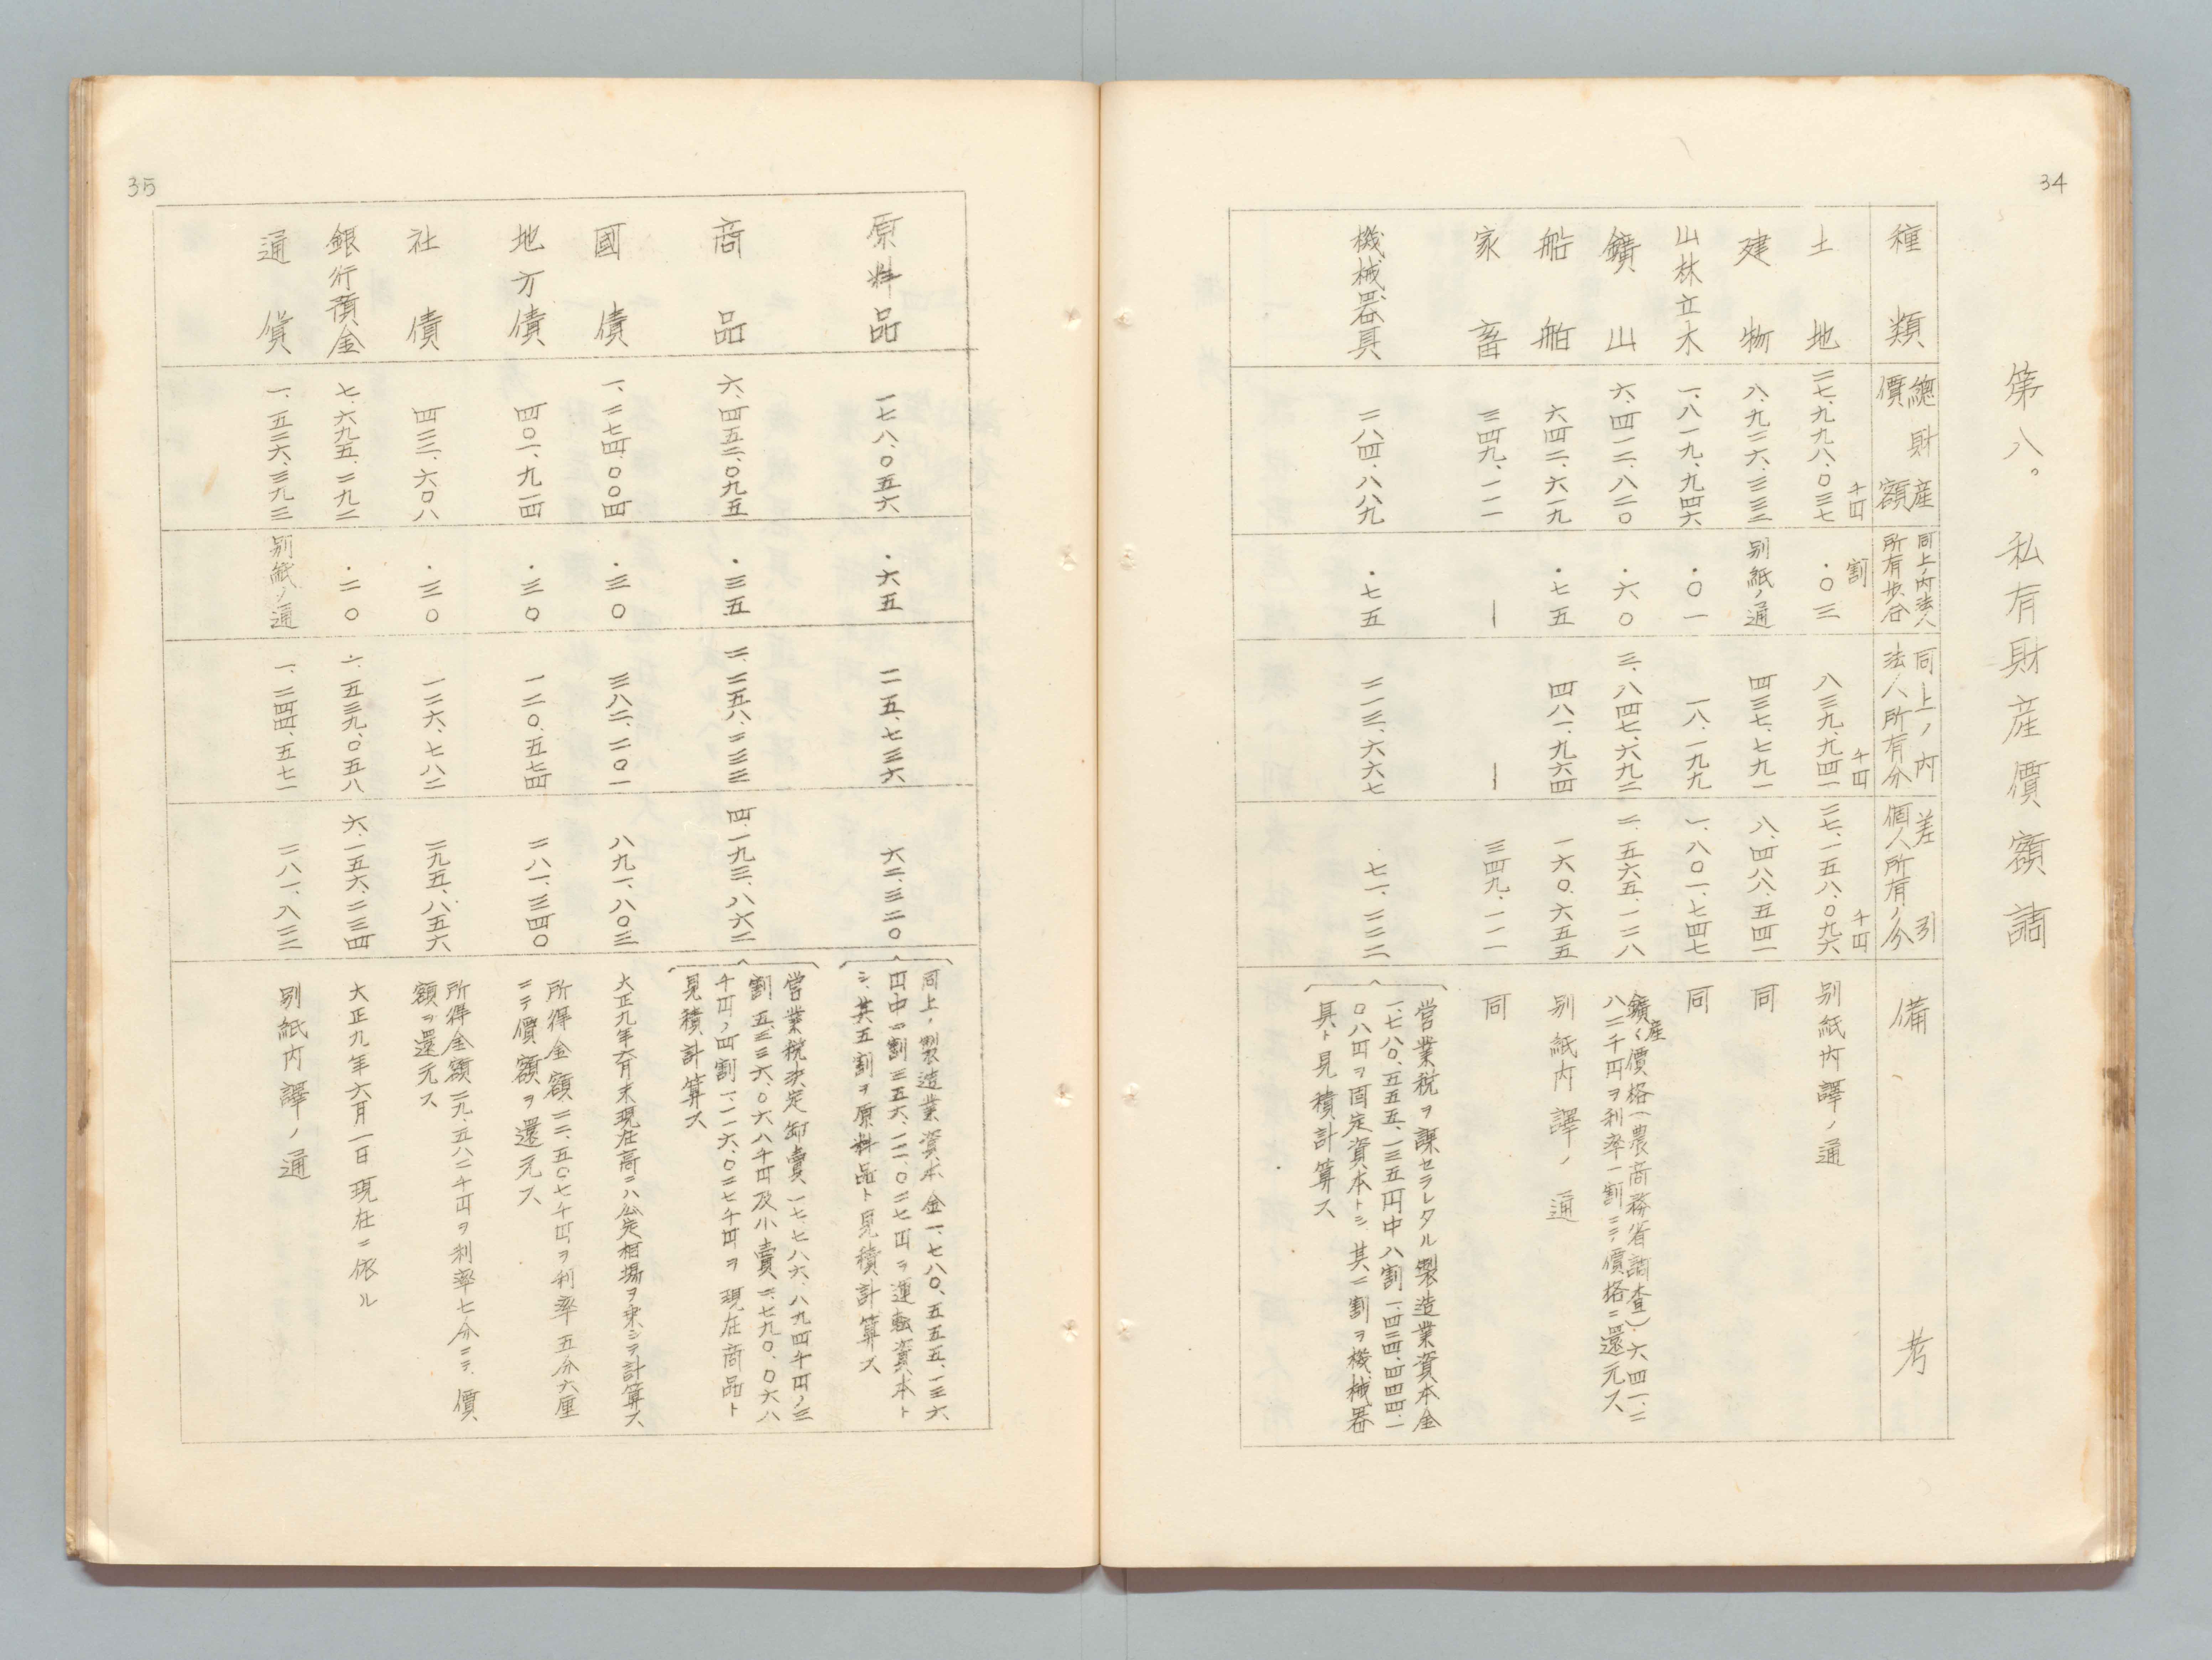 34
第八。 私有財産價額調
種類
總財産價額
同上ノ内法人所有歩合
同上ノ内法人所有分
差引個人所有ノ分
備考
土地
千円
二七、九九八、〇三七
割
・〇三
千円
八三九、九四一
千円
二七、一五八、〇九六
別紙内譯ノ通
建物
八、九二六、三三二
別紙ノ通
四三七、七九一
八、四八八、五四一
同
山林立木
一、八一九、九四六
・〇一
一八、一九九
一、八〇一、七四七
同
鑛山
六、四一二、八二〇
・六〇
三、八四七、六九二
二、五六五、一二八
鑛産價格(農商務省調査)六四一、二
八二千円ヲ利率一割ニテ價格ニ還元ス
船舶
六四二、六一九
・七五
四八一、九六四
一六〇、六五五
別紙内譯ノ通
家畜
三四九、一一一
—
—
三四九、一一一
同
機械器具
二八四、八八九
・七五
二一三、六六七
七一、二二二
営業税ヲ課セラレタル製造業資本金
一、七八〇、五五五、一三五円中八割一、四二四、四四四、一
〇八円ヲ固定資本トシ其二割ヲ機械器
具ト見積計算ス
35
原料品
一七八、〇五六
・六五
一一五、七三六
六二、三二〇
同上ノ製造業資本金一、七八〇、五五五、一三六
円中二割三五六、一一一、〇二七円ヲ運転資本ト
シ其五割ヲ原料品ト見積計算ス
商品
六、四五二、〇九五
・三五
二、二五八、二三三
四、一九三、八六二
営業税決定卸賣一七、七八六、八九四千円ノ三
割五、三三六、〇六八千円及小賣二、七九〇、〇六八
千円ノ四割一、一一六、〇二七千円ヲ現在商品ト
見積計算ス
國債
一、二七四、〇〇四
・三〇
三八二、二〇一
八九一、八〇三
大正九年六月末現在高ニハ公定相場ヲ乗シテ計算ス
地方債
四〇一、九一四
・三〇
一二〇、五七四
二八一、三四〇
所得金額二二、五〇七千円ヲ利率五分六厘
ニテ價額ヲ還元ス
社債
四二二、六〇八
・三〇
一二六、七八二
二九五、八五六
所得金額二九、五八二千円ヲ利率七分ニテ價
額ヲ還元ス
銀行預金
七、六九五、二九二
・二〇
一、五三九、〇五八
六、一五六、二三四
大正九年六月一日現在ニ依ル
通貨
一、五二六、三九三
別紙ノ通
一、二四四、五七一
二八一、八二二
別紙内譯ノ通